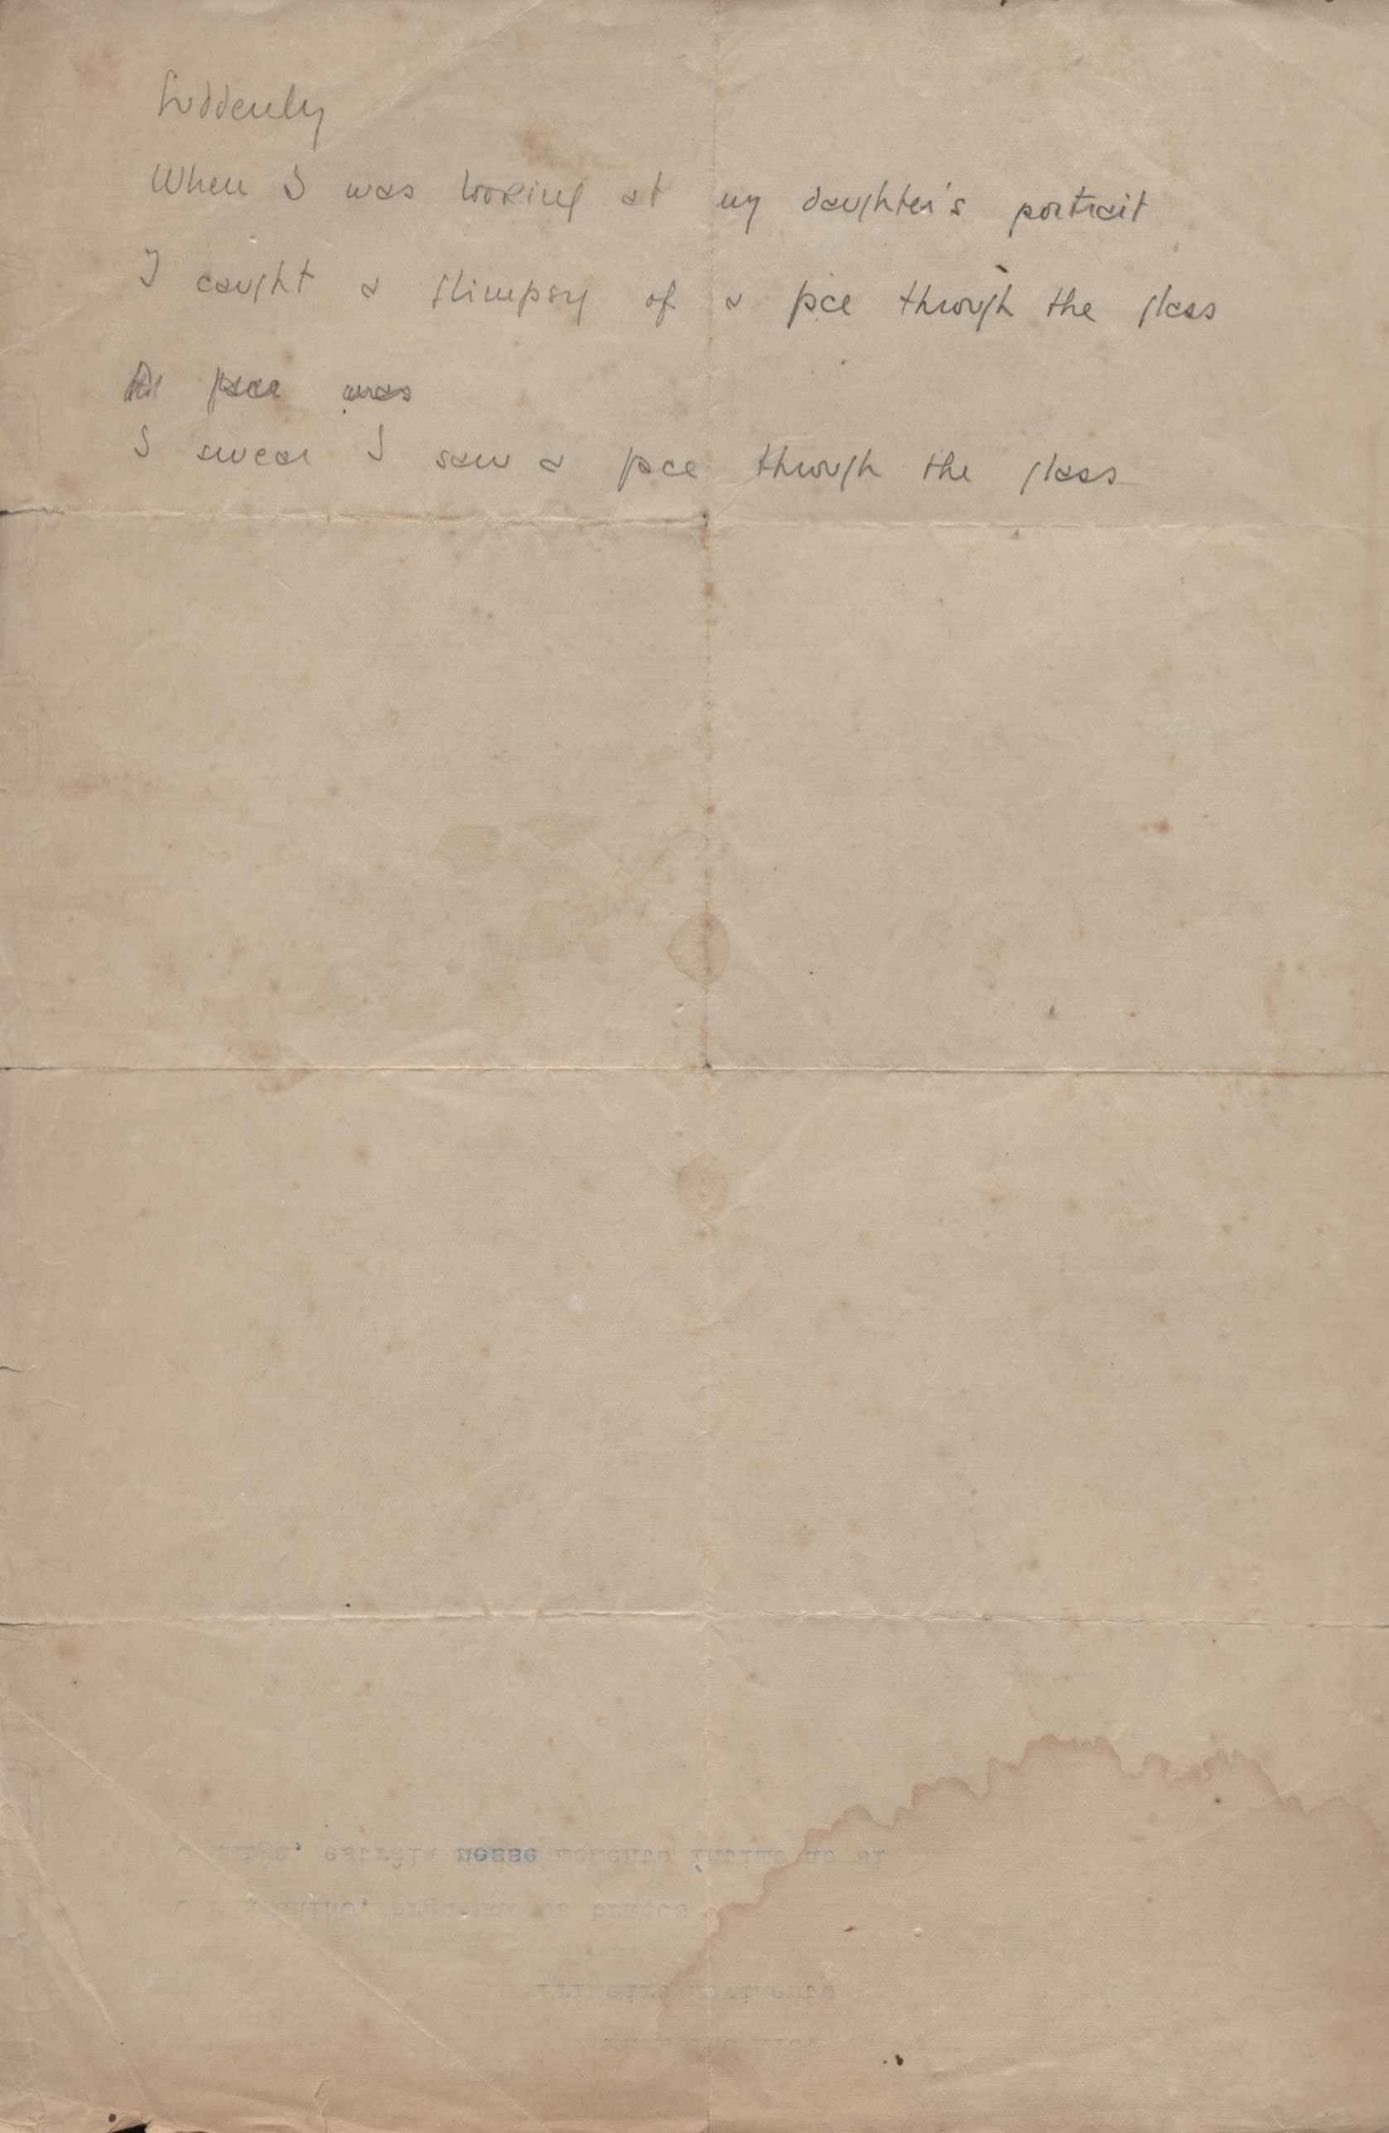 Suddenly
When I was looking at my daughter's portrait
I caught a glimpsy of a face through the glass
face was
I swear I saw a face through the glass
nesse